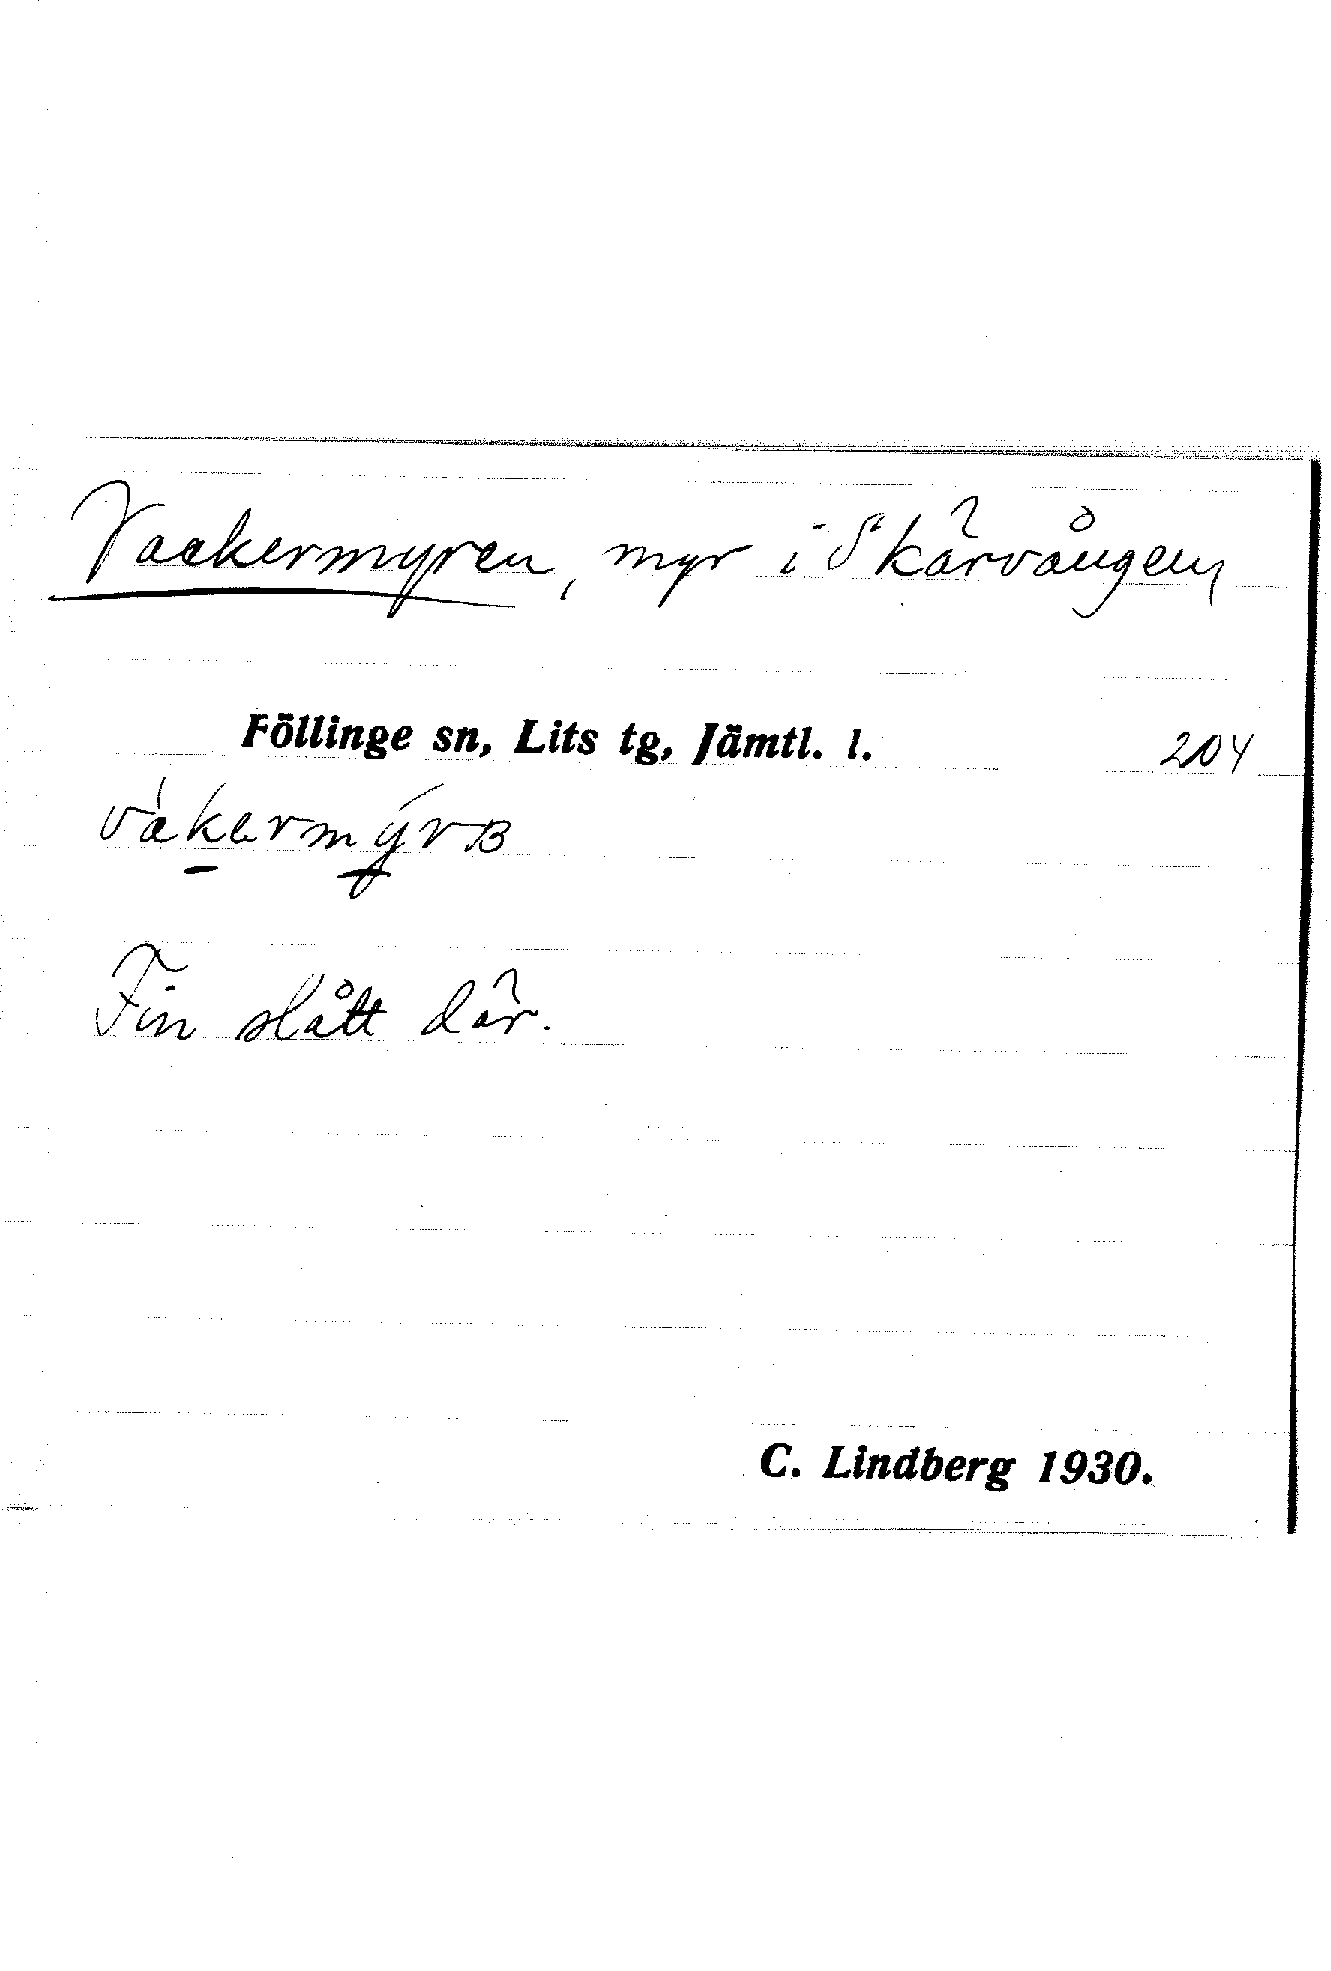 Vackermyren, myr i Skärvången
Föllinge sn, Lits tg, Jämtl. l. 204
vàkermýrʙ
Fin slått där.
C. Lindberg 1930.